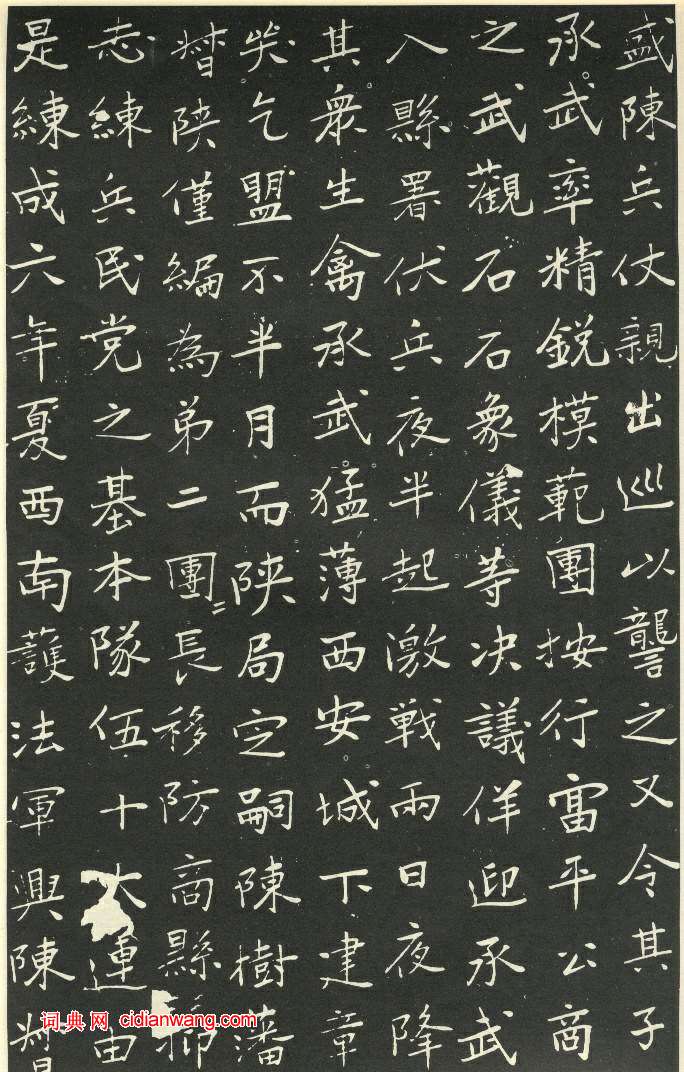 盛陳兵仗親出巡以讋之又令其子
承武率精銳模範團按行富平公商
之武觀石石象儀等决議佯迎承武
入縣署伏兵夜半起激戰兩日夜降
其眾生禽承武猛薄西安城下建章
哭乞盟不半月而陝局定嗣陳樹藩
督陝僅編為弟二團〻長移防商縣抑
志練兵民党之基本隊伍十大連由
是練成六年夏西南護法軍興陳督
词典网 cidianwang.com